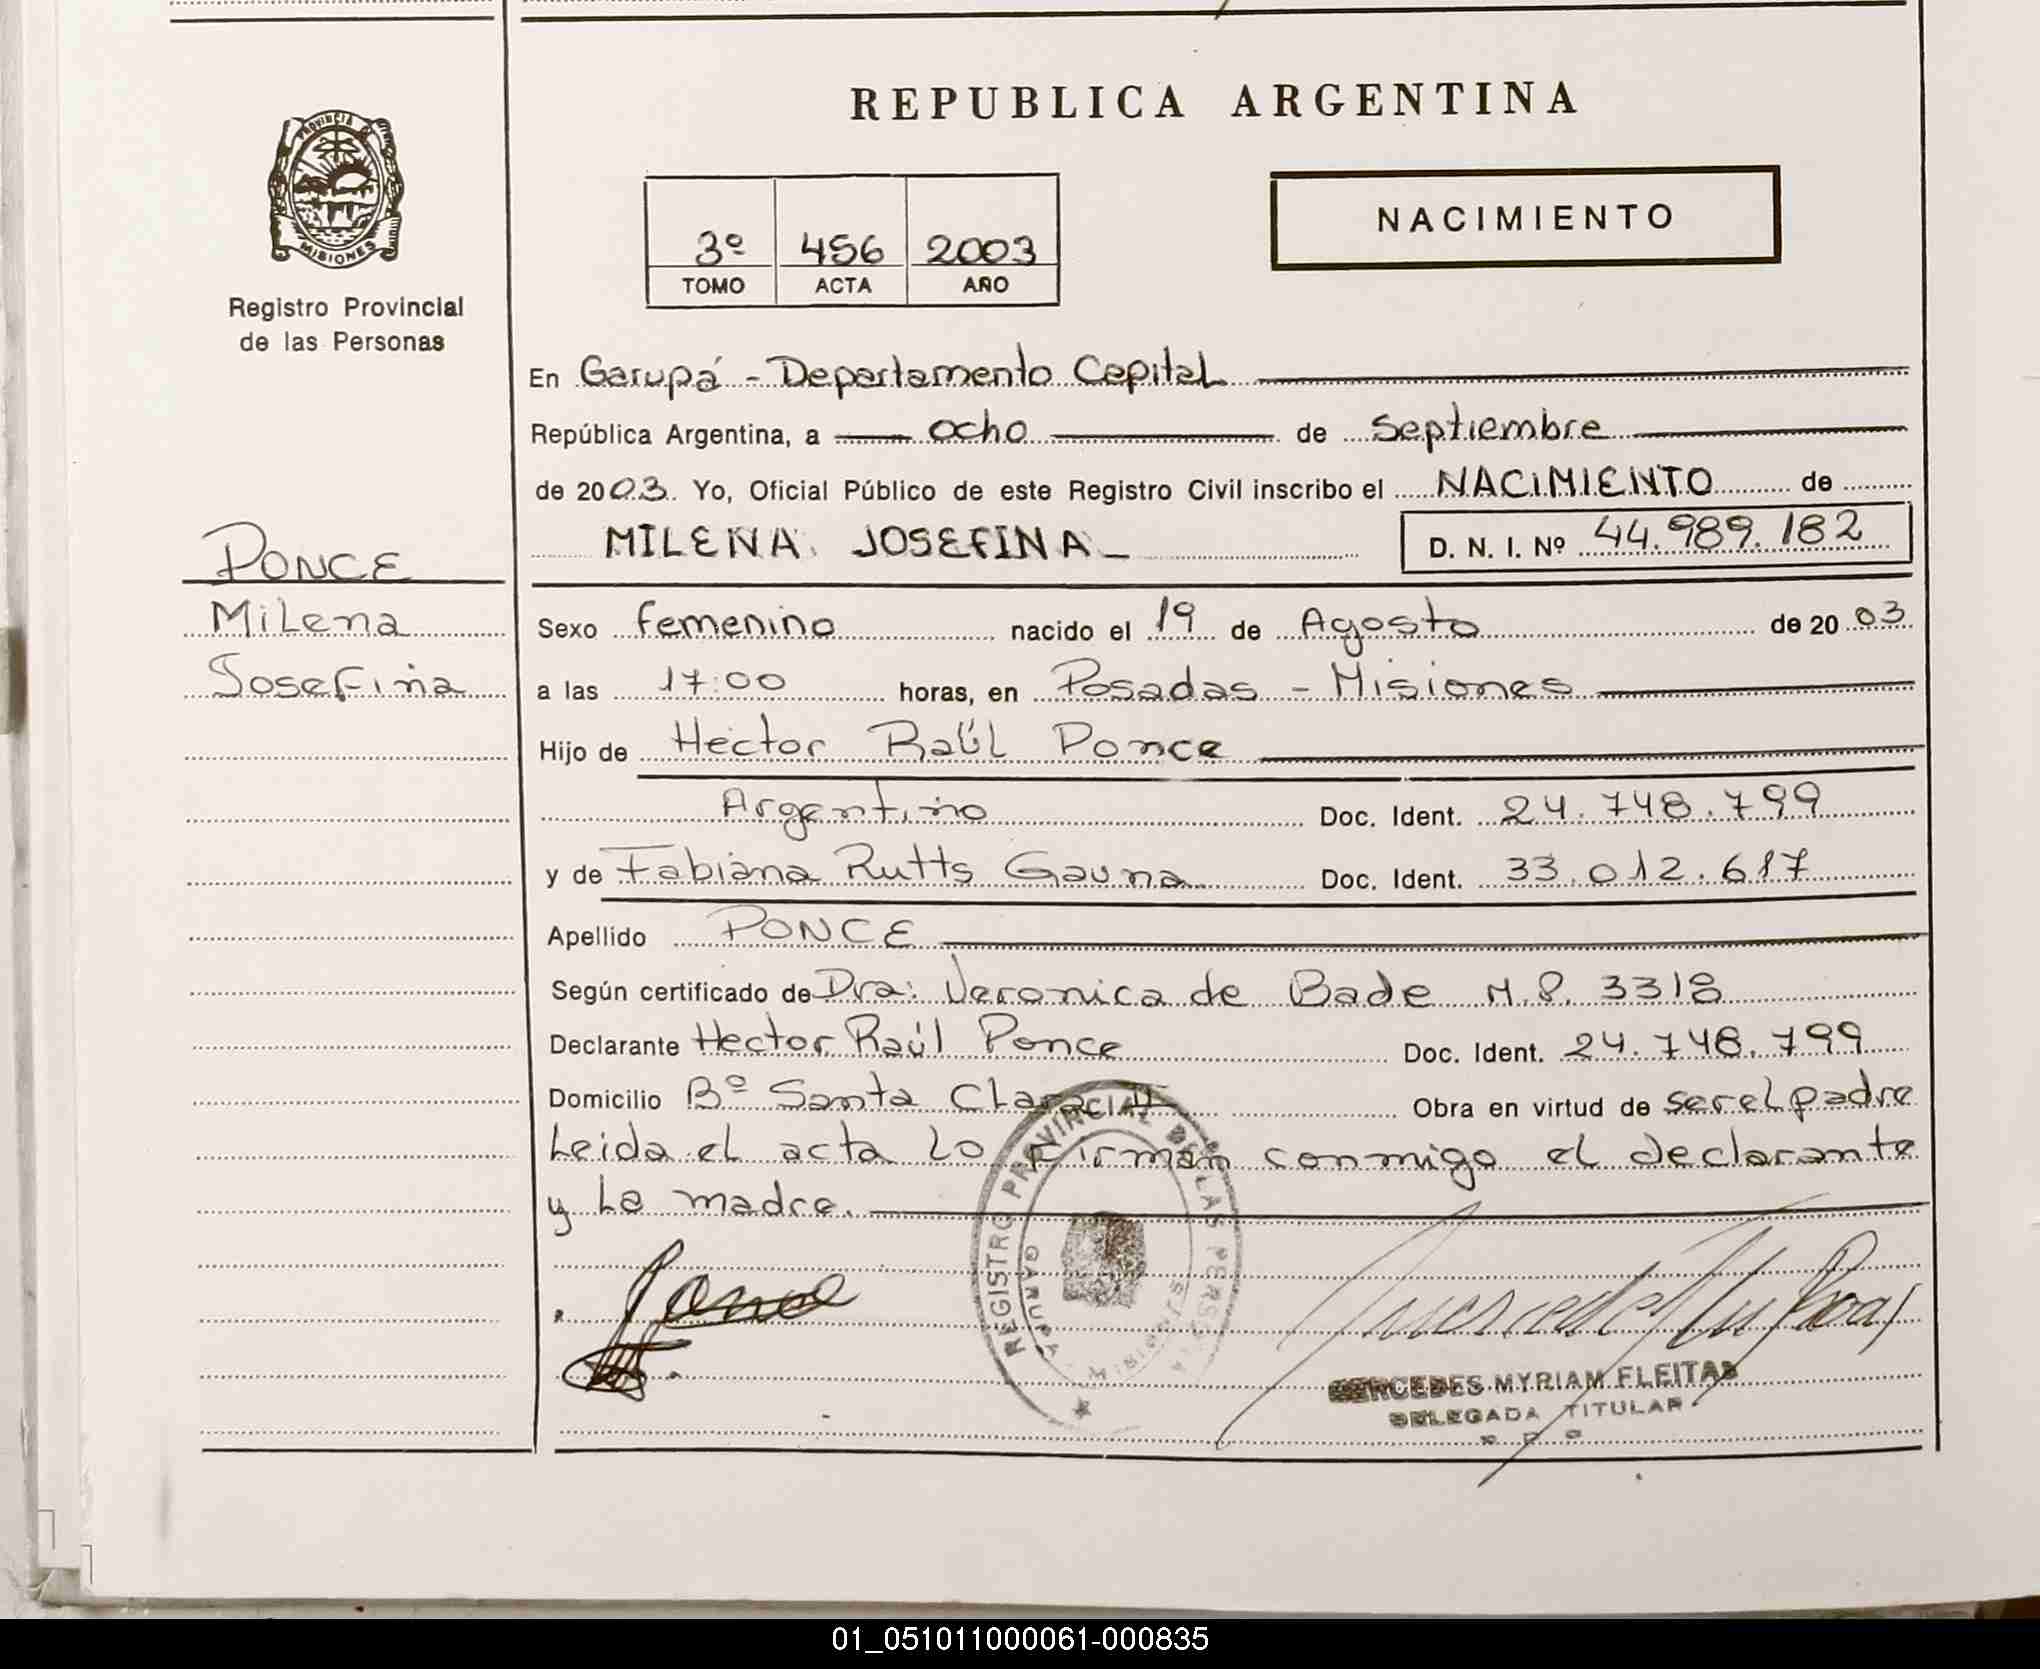 REPUBLICA ARGENTINA
PROVINCIA DE
MISIONES
Registro Provincial
de las Personas
3º 456 2003
TOMO ACTA AÑO
NACIMIENTO
En Garupá - Departamento Capital
República Argentina, a ocho de Septiembre
de 2003. Yo, Oficial Público de este Registro Civil inscribo el NACIMIENTO de
MILENA JOSEFINA D. N. I. Nº 44.989.182
PONCE
Milena
Josefina
Sexo femenino nacido el 19 de Agosto de 2003
a las 17:00 horas, en Posadas - Misiones
Hijo de Hector Raúl Ponce
Argentino Doc. Ident. 24.748.799
y de Fabiana Rutts Gauna Doc. Ident. 33.012.617
Apellido PONCE
Según certificado de Dra: Veronica de Bade M.P. 3318
Declarante Hector Raúl Ponce Doc. Ident. 24.748.799
Domicilio Bº Santa Clara II Obra en virtud de ser el padre
Leida el acta lo firman conmigo el declarante
y la madre.
Ponce
REGISTRO PROVINCIAL DE LAS PERSONAS
GARUPA MISIONES
MERCEDES MYRIAM FLEITAS
DELEGADA TITULAR
01_051011000061-000835